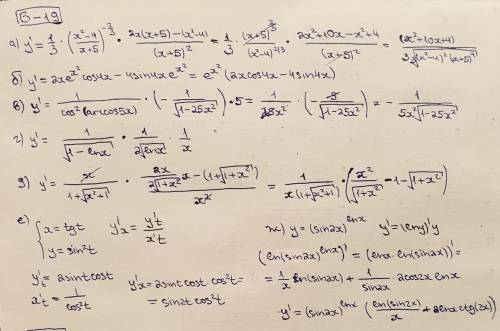 В-19
а) y' = 1/3 · ((x²-4)/(x+5))^(-2/3) · (2x(x+5)-(x²-4))/(x+5)² = 1/3 · (x+5)^(2/3)/(x²-4)^(2/3) · (2x²+10x-x²+4)/(x+5)² = (x²+10x+4)/(3∛((x²-4)²(x+5)⁴))
б) y' = 2xe^(x²)cos4x - 4sin4xe^(x²) = e^(x²)(2xcos4x - 4sin4x)
в) y' = 1/(cos²(arccos5x)) · (-1/√(1-25x²)) · 5 = 1/(25x²) · (-5/√(1-25x²)) = -1/(5x²√(1-25x²))
г) y' = 1/√(1-lnx) · 1/(2√lnx) · 1/x
д) y' = x/(1+√(x²+1)) · ((2x/(2√(1+x²)))x - (1+√(1+x²)))/x² = 1/(x(1+√(x²+1))) · (x²/√(1+x²) - 1 - √(1+x²))
е) { x = tgt y'x = y't/x't
y = sin²t
y't = 2sintcost y'x = 2sintcost·cos²t =
x't = 1/cos²t = sin2t cos²t
ж) y = (sin2x)^(lnx) y' = (lny)'y
(ln(sin2x)^(lnx))' = (lnx·ln(sin2x))' =
= 1/x ln(sin2x) + 1/sin2x · 2cos2x lnx
y' = (sin2x)^(lnx) (ln(sin2x)/x + 2lnx ctg(2x))